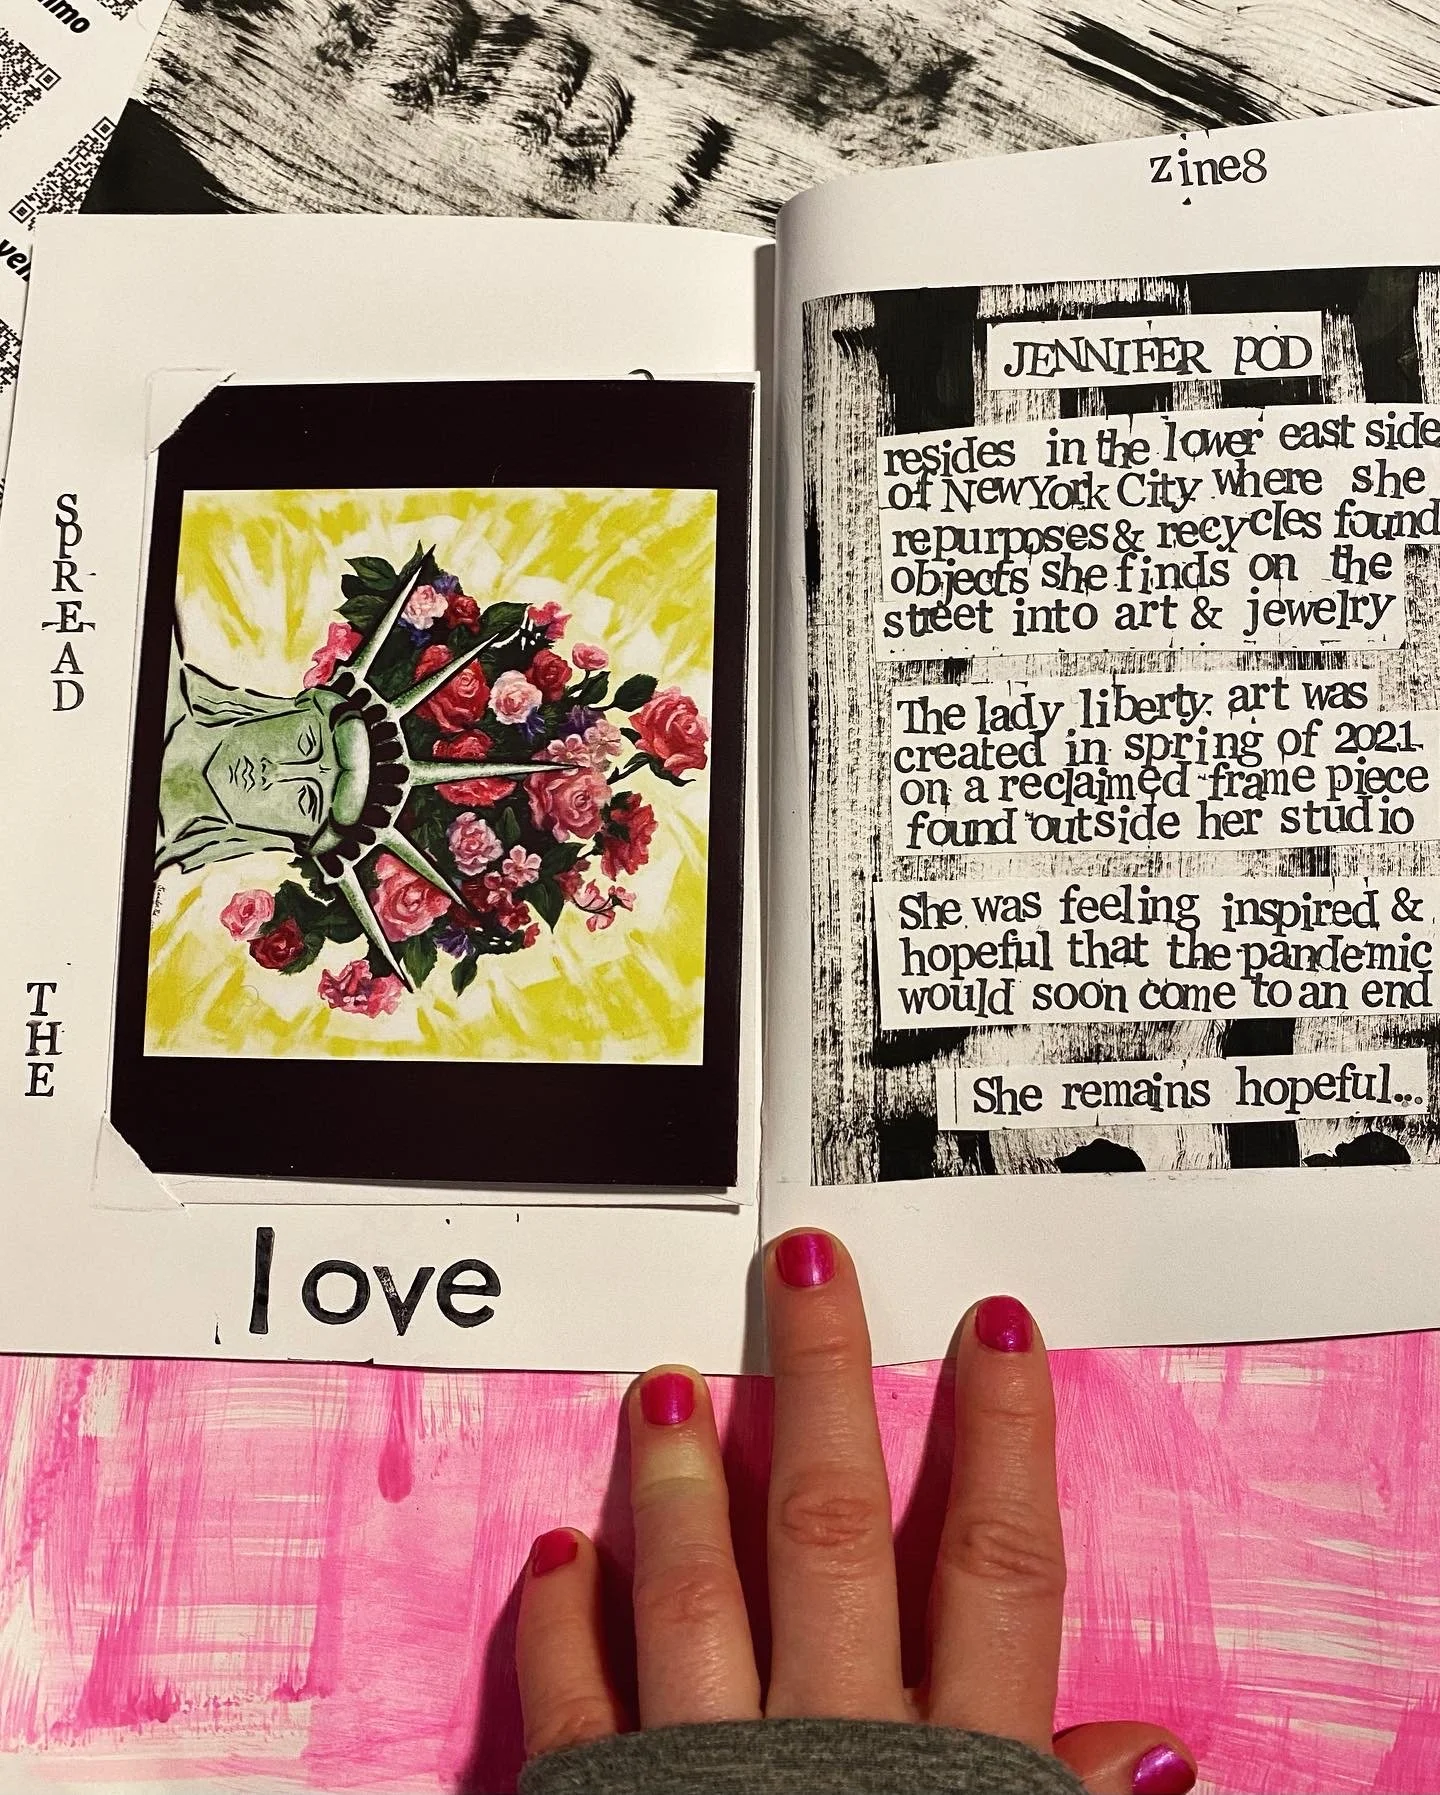 SPREAD
THE
love
zine8
JENNIFER POD
resides in the lower east side
of New York City where she
repurposes & recycles found
objects she finds on the
street into art & jewelry
The lady liberty art was
created in spring of 2021
on a reclaimed frame piece
found outside her studio
She was feeling inspired &
hopeful that the pandemic
would soon come to an end
She remains hopeful...